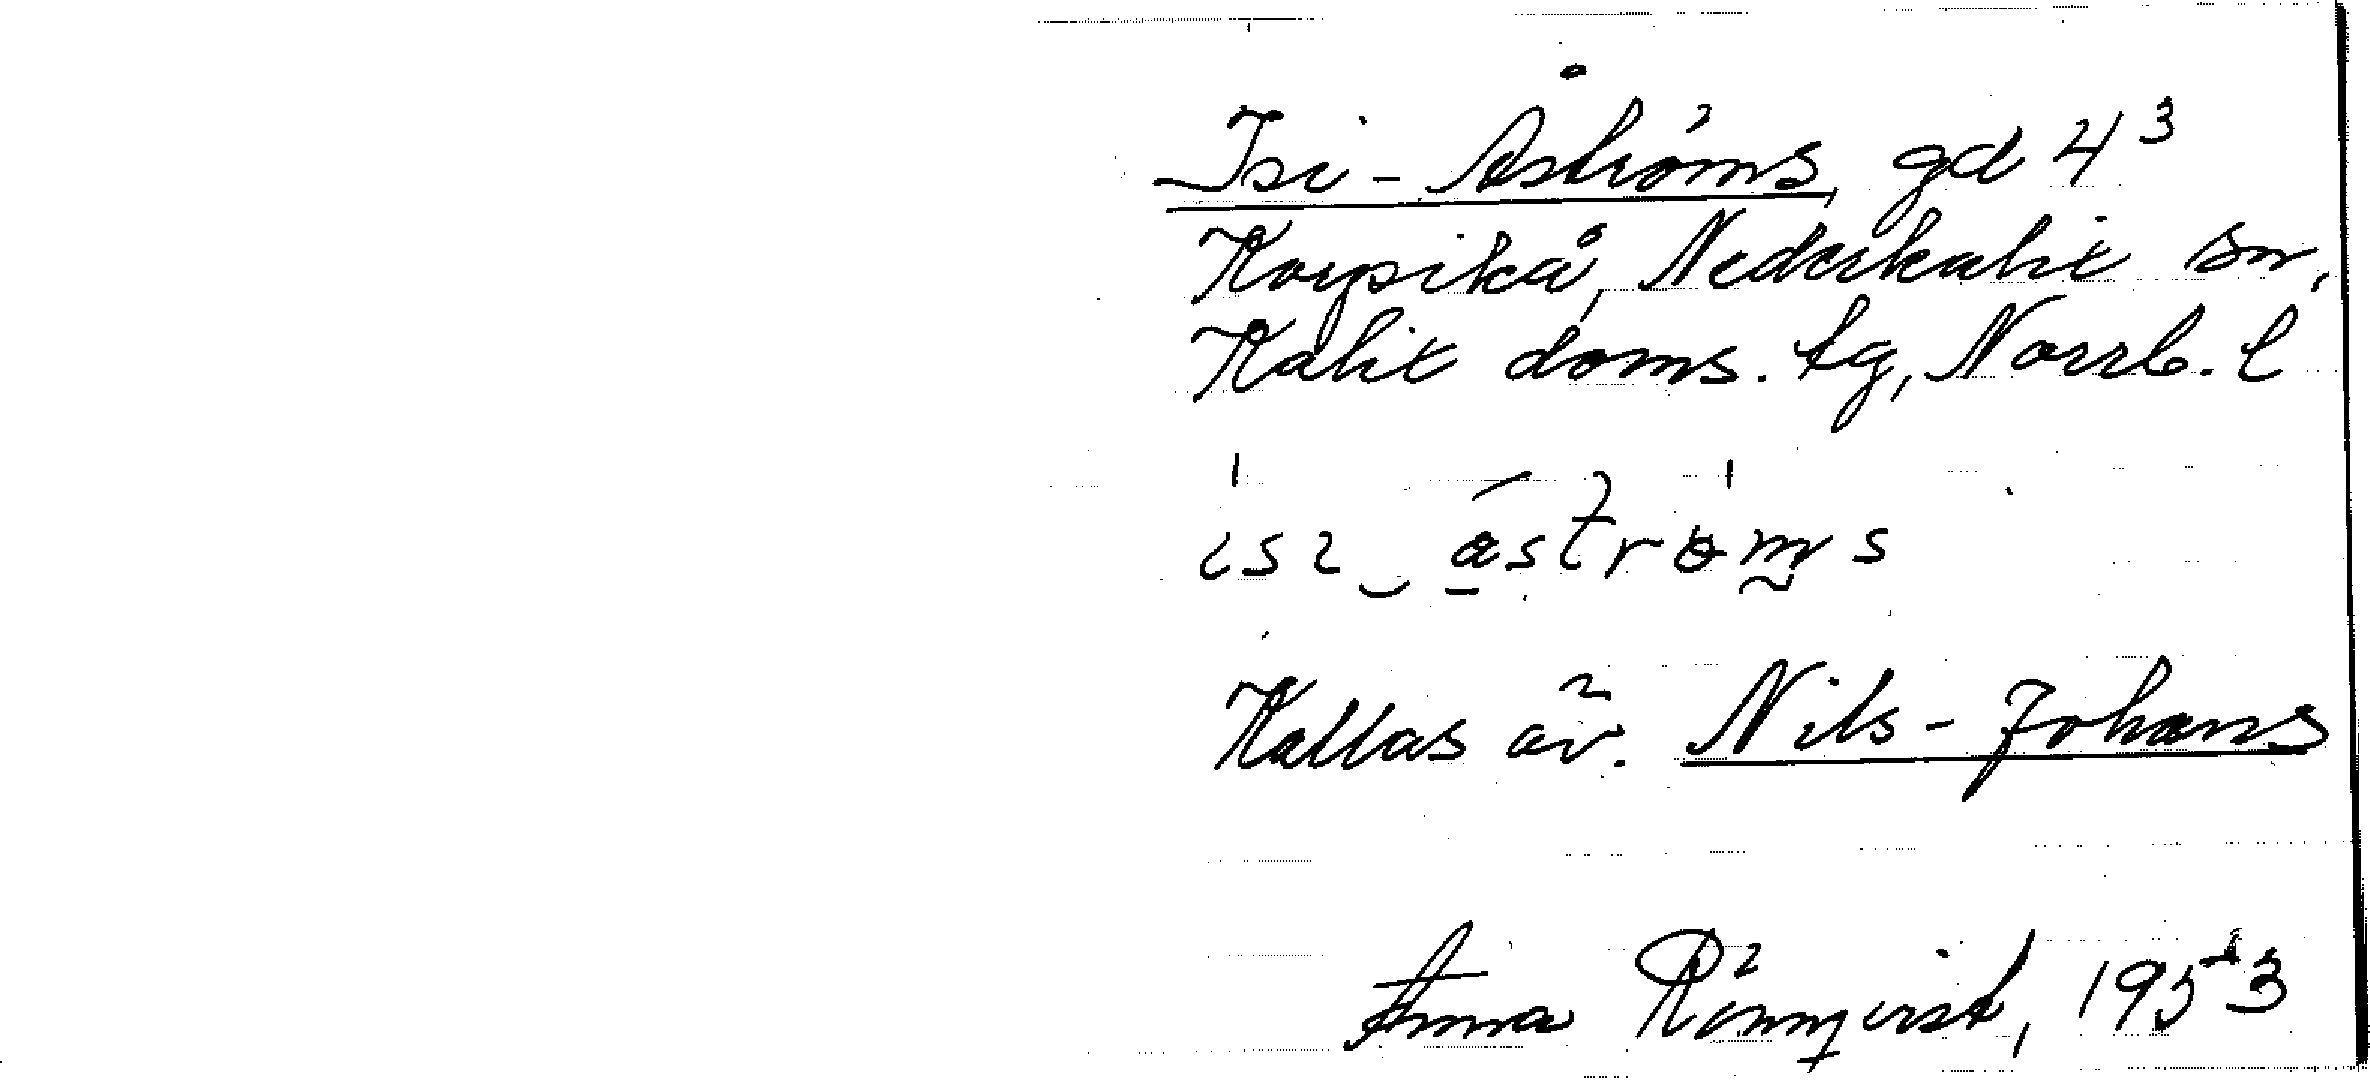 Isi-Åströms, gd 4³
Korpikå, Nederkalix sn,
Kalix doms. tg, Norrb. l
Kallas äv. Nils-Johans
Anna Rönnqvist, 1953